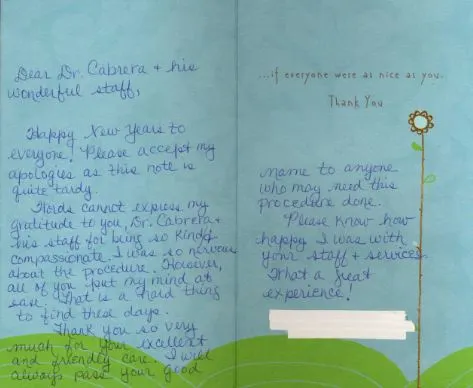 Dear Dr. Cabrera + his
wonderful staff,
Happy New Years to
everyone! Please accept my
apologies as this note is
quite tardy.
Words cannot express my
gratitude to you, Dr. Cabrera +
his staff for being so kind &
compassionate. I was so nervous
about the procedure. However,
all of you put my mind at
ease. That is a hard thing
to find these days.
Thank you so very
much for your excellent
and friendly care. I will
always pass your good
...if everyone were as nice as you...
Thank You
name to anyone
who may need this
procedure done.
Please know how
happy I was with
your staff + services.
What a great
experience!